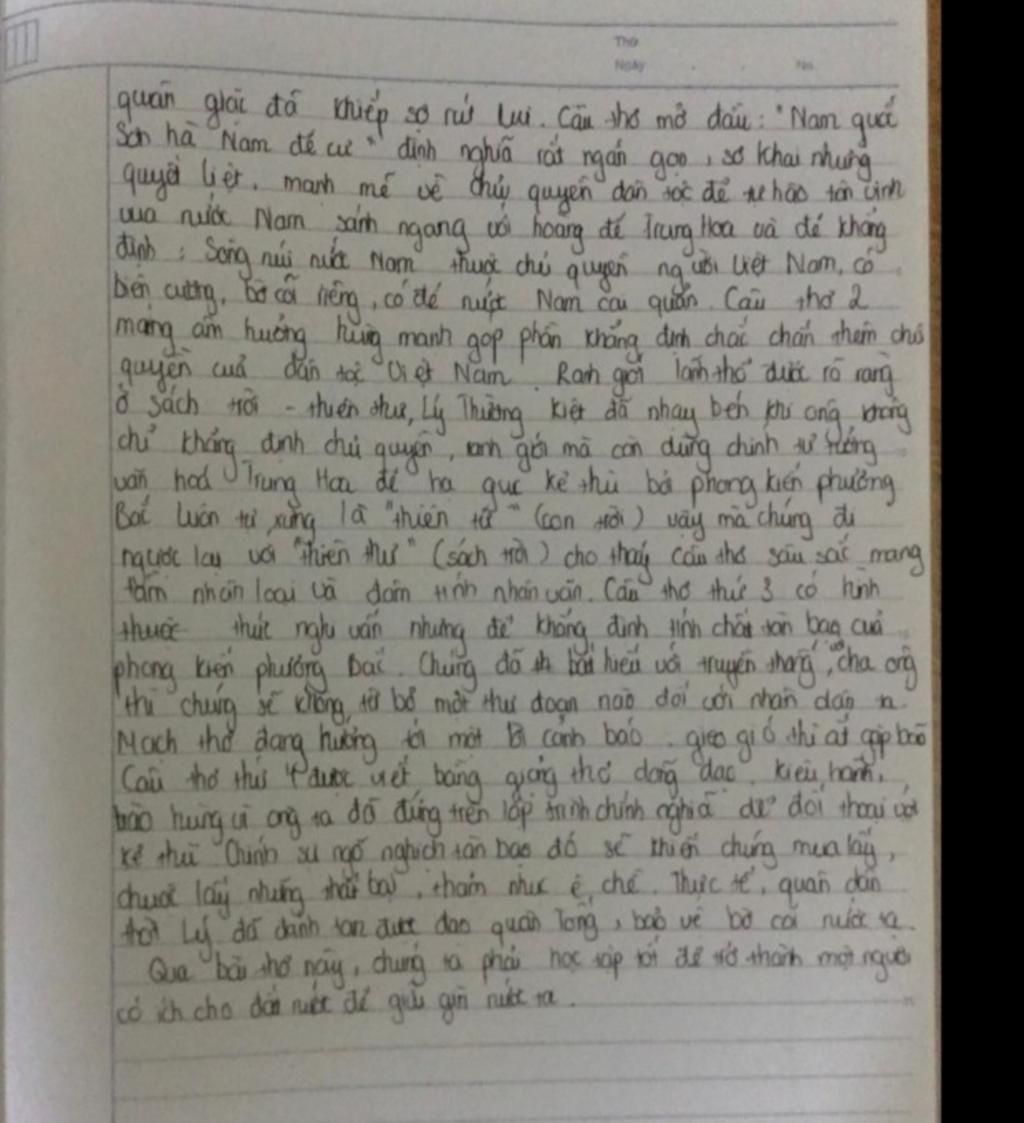 Thứ
Ngày . . No.
quân giặc đã khiếp sợ rút lui. Câu thơ mở đầu: "Nam quốc
Sơn hà Nam đế cư" định nghĩa rất ngắn gọn, sơ khai nhưng
quyết liệt, mạnh mẽ về chủ quyền dân tộc để tự hào tôn vinh
vua nước Nam sánh ngang với hoàng đế Trung Hoa và để khẳng
định: Sông núi nước Nam thuộc chủ quyền người Việt Nam, có
biên cương, bờ cõi riêng, có đế nước Nam cai quản. Câu thơ 2
mang âm hưởng hùng mạnh góp phần khẳng định chắc chắn thêm chủ
quyền của dân tộc Việt Nam. Ranh giới lãnh thổ được rõ ràng
ở sách trời - thiên thư, Lý Thường Kiệt đã nhạy bén khi ông không
chỉ khẳng định chủ quyền, ranh giới mà còn dùng chính tư tưởng
văn hoá Trung Hoa để hạ gục kẻ thù bởi phong kiến phương
Bắc luôn tự xưng là "thiên tử" (con trời) vậy mà chúng đi
ngược lại với "thiên thư" (sách trời) cho thấy câu thơ sâu sắc mang
tầm nhân loại và đậm tính nhân văn. Câu thơ thứ 3 có hình
thước thức nghi vấn nhưng để khẳng định tính chất tàn bạo của
phong kiến phương Bắc. Chúng đã bất hiếu với truyền thống, cha ông
thì chúng sẽ không từ bỏ một thủ đoạn nào đối với nhân dân ta.
Mạch thơ đang hướng tới một lời cảnh báo. gieo gió thì ắt gặp bão
Câu thơ thứ 4 được viết bằng giọng thơ dõng dạc, kiêu hãnh,
hào hùng vì ông ta đã đứng trên lập trình chính nghĩa để đối thoại với
kẻ thù. Chính sự ngỗ nghịch tàn bạo đó sẽ khiến chúng mua lấy,
chuốc lấy những thất bại, thảm như ê chề. Thực tế, quân dân
thời Lý đã đánh tan được đạo quân Tống, bảo vệ bờ cõi nước ta.
Qua bài thơ này, chúng ta phải học tập tốt để trở thành một người
có ích cho đất nước để giữ gìn nước ta.